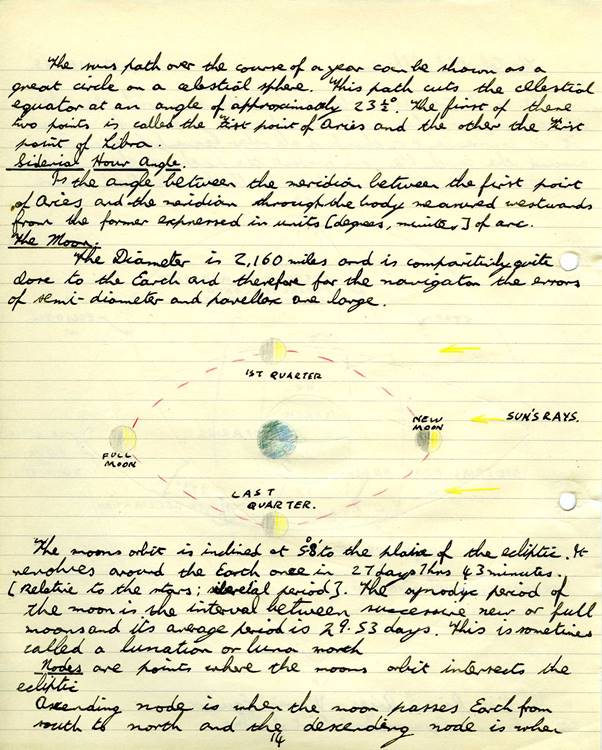 The suns path over the course of a year can be shown as a
great circle on a celestial sphere. This path cuts the celestial
equator at an angle of approximately 23½°. The first of these
two points is called the First point of Aries and the other the First
point of Libra.
Siderial Hour Angle.
Is the angle between the meridian between the first point
of Aries and the meridian through the body measured westwards
from the former expressed in units [degrees, minutes] of arc.
The Moon.
The Diameter is 2,160 miles and is comparitivly quite
close to the Earth and therefore for the navigator the errors
of semi-diameter and parellax are large.
1ST QUARTER
NEW
MOON
SUN'S RAYS.
FULL
MOON
LAST
QUARTER.
The moons orbit is inclined at 5°8' to the plain of the ecliptic. It
revolves around the Earth once in 27 days 7 hrs 43 minutes.
[Relative to the stars; period]. The synodic period of
the moon is the interval between successive new or full
moons and its average period is 29.53 days. This is sometimes
called a lunation or luna month
Nodes are points where the moons orbit intersects the
ecliptic
Ascending node is when the moon passes Earth from
south to north and the descending node is when
14